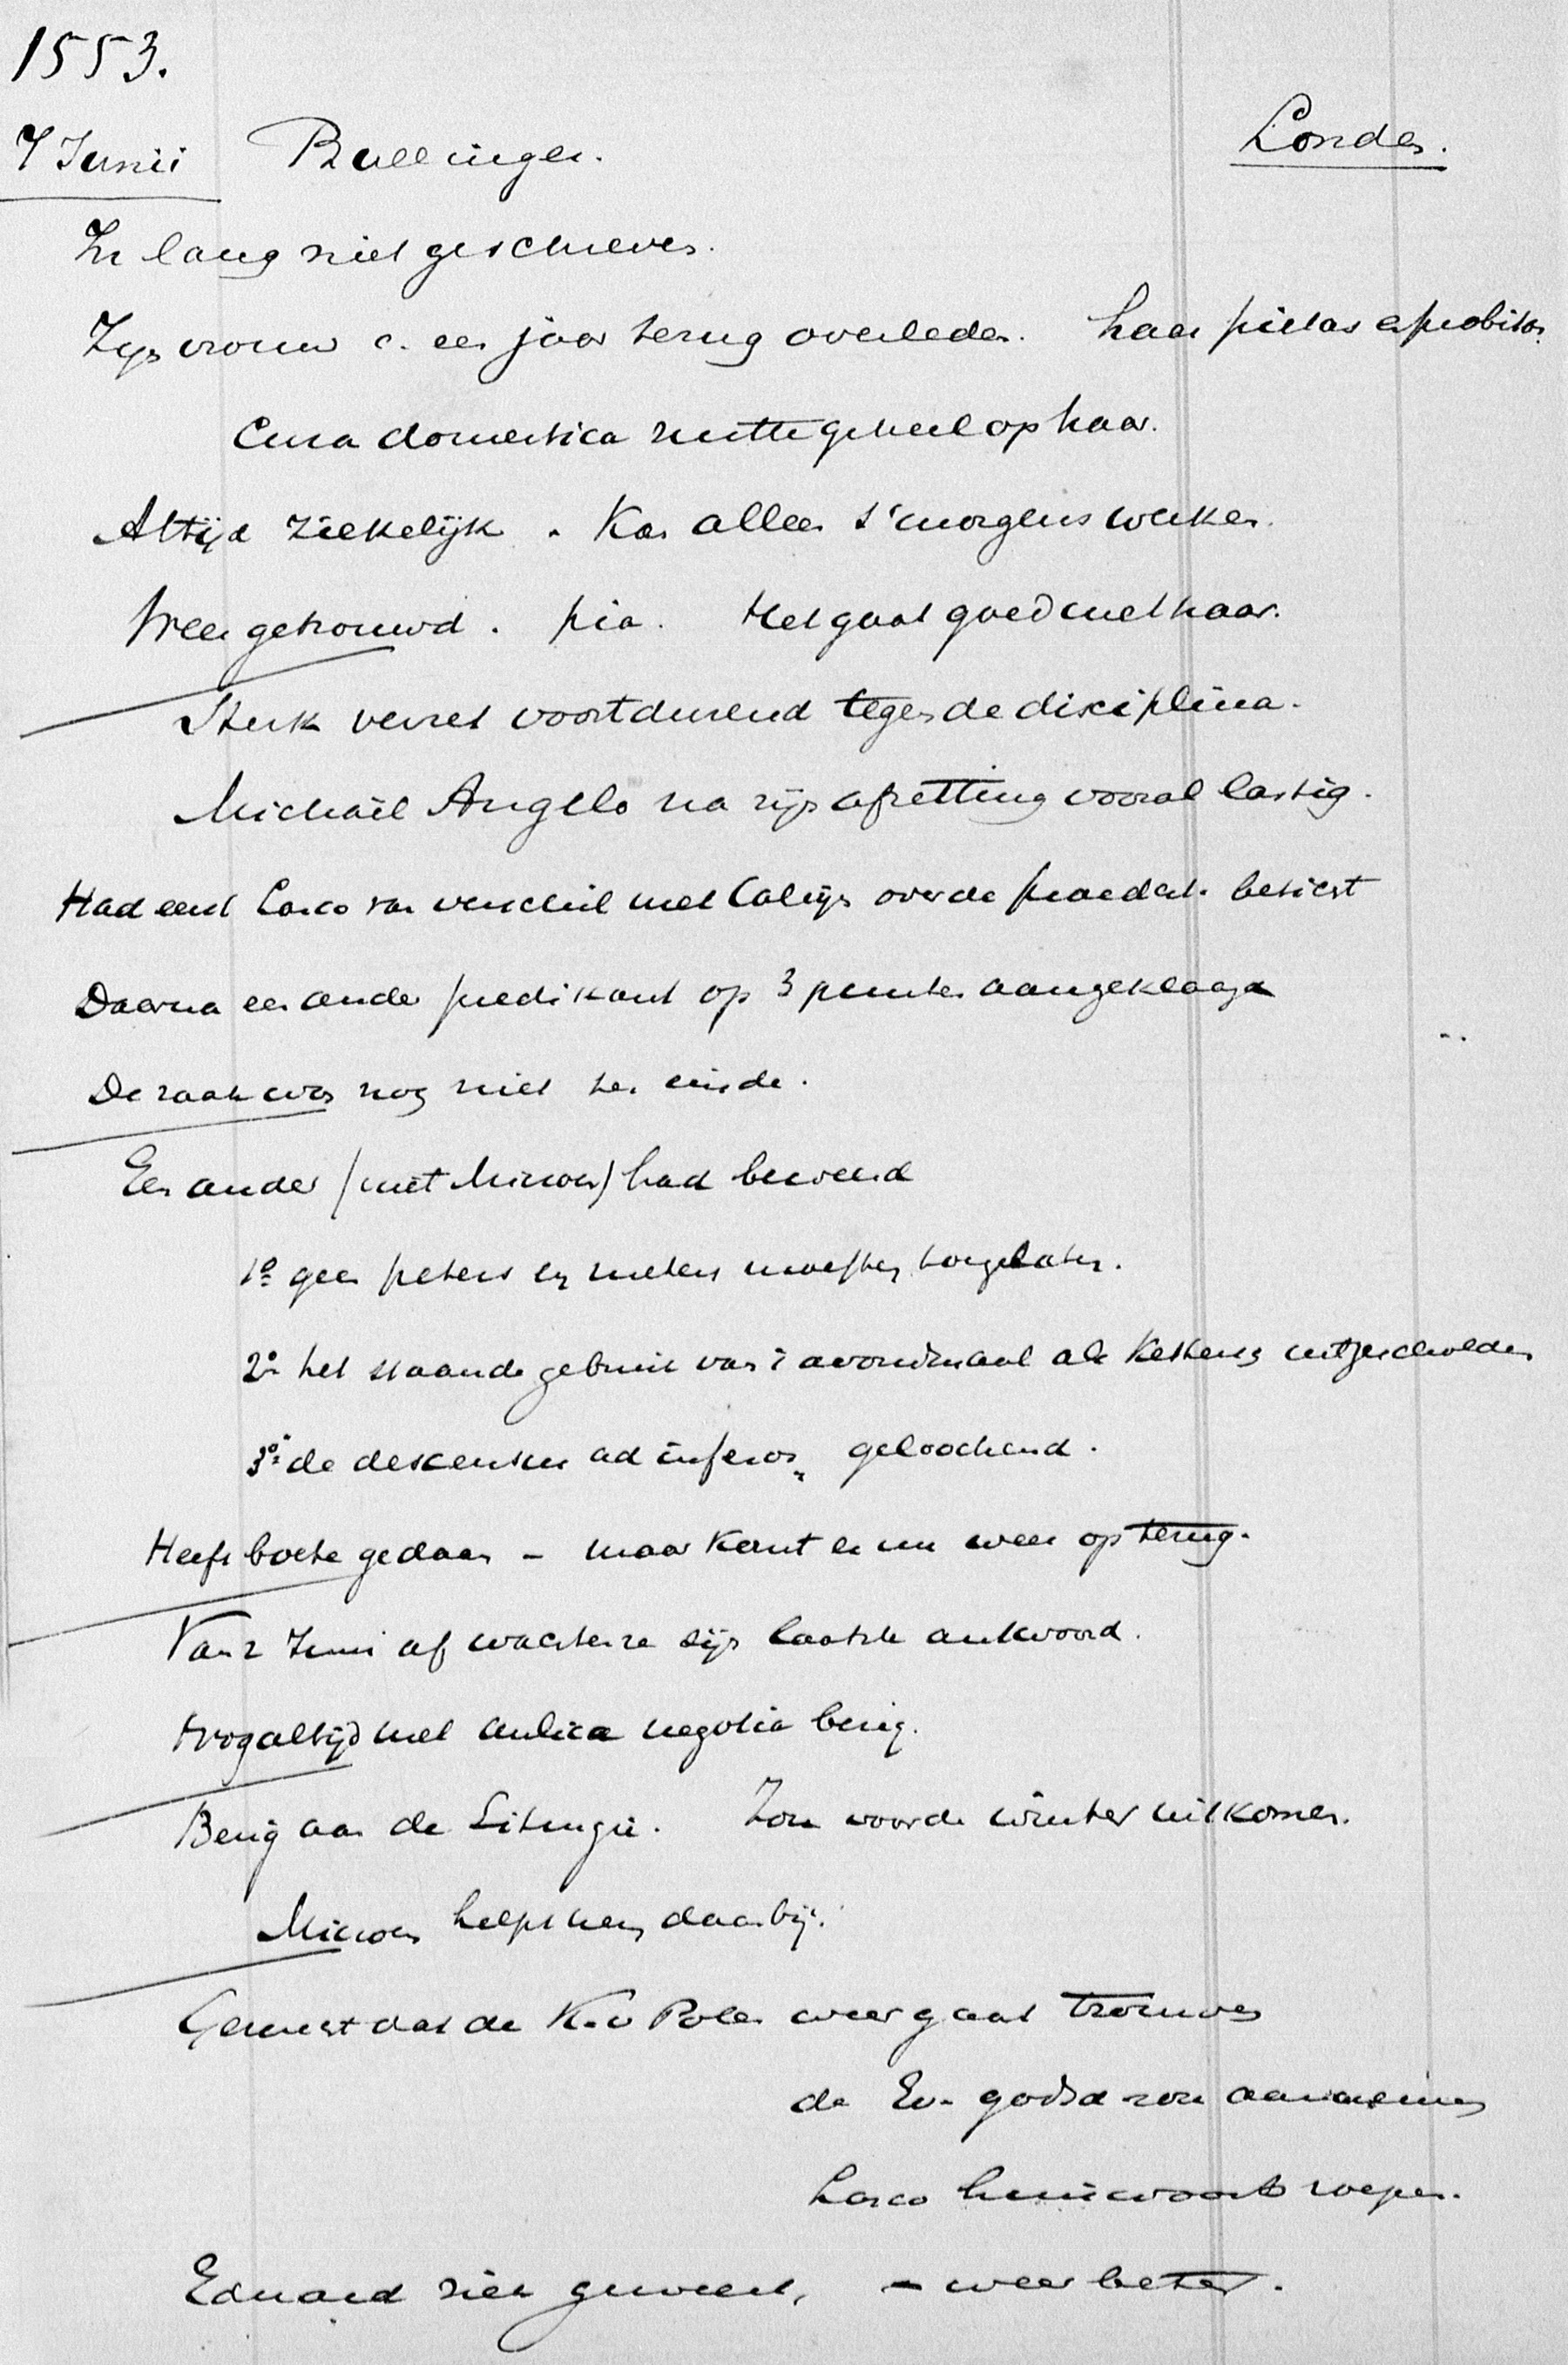 1553.
7 Junii Bullinger. Londen.
In lang niet geschreven.
Zijn vrouw c. een jaar terug overleden. haar pietas & probitas.
Cura domestica rustte geheel op haar.
Altijd ziekelijk. Kan alleen 's morgens werken.
Weer getrouwd. pia. Het gaat goed met haar.
Sterk verzet voortdurend tegen de disciplina.
Michaël Angelo na zijn afzetting vooral lastig.
Had eerst Lasco van verschil met Calvijn over de praedest. beticht
Daarna een ander predikant op 3 punten aangeklaagd
De zaak was nog niet ten einde.
Een ander (niet Micron) had beweerd
1o geen peters en meters moesten toegelaten.
2o het staande gebruik van 't avondmaal als ketterij uitgescholden
3o de descensus ad inferos geloochend.
Heeft boete gedaan – maar komt er nu weer op terug.
Van 2 Juni af wachten ze zijn laatste antwoord.
Nog altijd met aulica negotia bezig.
Bezig aan de Liturgie. Zou voor de winter uitkomen.
Micron helpt hem daarbij.
Gerucht dat de K. v Polen weer gaat trouwen
de Ev. godsd zou aannemen
Lasco huiswaarts roepen.
Eduard ziek geweest, – weer beter.